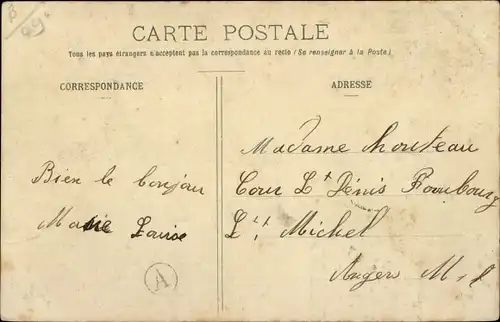 CARTE POSTALE
Tous les pays étrangers n'acceptent pas la correspondance au recto (Se renseigner à la Poste)
CORRESPONDANCE
ADRESSE
Madame
Cour St Denis Faoubourg
St Michel
Angers M-l
Bien le bonjour
Marie Louise
A